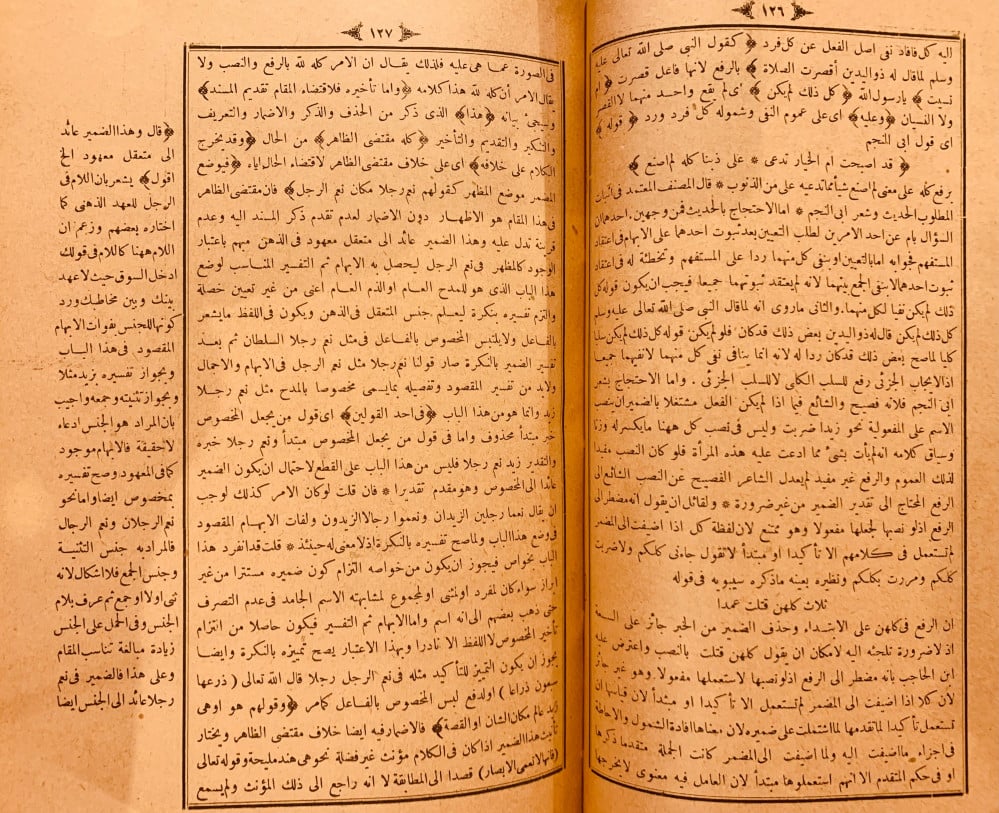 ﴿ ١٢٦ ﴾
اليه كل فافاد نفى اصل الفعل عن كل فرد ﴿ كقول النبى صلى الله تعالى عليه
وسلم لما قال له ذو اليدين أقصرت الصلاة ﴾ بالرفع لانها فاعل قصرت ﴿ ام
نسيت ﴾ يا رسول الله ﴿ كل ذلك لم يكن ﴾ اى لم يقع واحد منهما لا القصر
ولا النسيان ﴿ وعليه ﴾ اى على عموم النفى وشموله كل فرد ورد ﴿ قوله ﴾
اى قول ابى النجم
﴿ قد اصبحت ام الخيار تدعى * على ذنبا كله لم اصنع ﴾
برفع كله على معنى لم اصنع شيأ مما تدعيه على من الذنوب * قال المصنف المعتمد فى اثبات
المطلوب الحديث وشعر ابى النجم * اما الاحتجاج بالحديث فمن وجهين * احدهما ان
السؤال بام عن احد الامرين لطلب التعيين بعد ثبوت احدهما على الابهام فى اعتقاد
المستفهم فجوابه اما بالتعيين او بنفى كل منهما ردا على المستفهم وتخطئة له فى اعتقاد
ثبوت احدهما لا بنفى الجمع بينهما لانه لم يعتقد ثبوتهما جميعا فيجب ان يكون قوله كل
ذلك لم يكن نفيا لكل منهما * والثانى ما روى انه لما قال النبى صلى الله تعالى عليه وسلم
كل ذلك لم يكن قال له ذو اليدين بعض ذلك قد كان * فلو لم يكن قوله كل ذلك لم يكن سلبا
كليا لما صح بعض ذلك قد كان ردا له لانه انما ينافى نفى كل منهما لا نفيهما جميعا
اذ الايجاب الجزئى رفع للسلب الكلى لا للسلب الجزئى . واما الاحتجاج بشعر
ابى النجم فلانه فصيح والشائع فيما اذا لم يكن الفعل مشتغلا بالضمير ان ينصب
الاسم على المفعولية نحو زيدا ضربت وليس فى نصب كل ههنا ما يكسر له وزنا
وسياق كلامه انه لم يأت بشئ مما ادعت عليه هذه المرأة فلو كان النصب مفيدا
لذلك العموم والرفع غير مفيد لم يعدل الشاعر الفصيح عن النصب الشائع الى
الرفع المحتاج الى تقدير الضمير من غير ضرورة * ولقائل ان يقول انه مضطر الى
الرفع اذ لو نصبها لجعلها مفعولا وهو ممتنع لان لفظة كل اذا اضيفت الى المضمر
لم تستعمل فى كلامهم الا تأكيدا او مبتدأ لا تقول جاءنى كلكم ولا ضربت
كلكم ومررت بكلكم ونظيره بعينه ما ذكره سيبويه فى قوله
ثلاث كلهن قتلت عمدا
ان الرفع فى كلهن على الابتداء وحذف الضمير من الخبر جائز على السعة
اذ لا ضرورة تلجئه اليه لامكان ان يقول كلهن قتلت بالنصب واعترض عليه
ابن الحاجب بانه مضطر الى الرفع اذ لو نصبها لاستعملها مفعولا وهو غير جائز
لان كلا اذا اضيفت الى المضمر لم تستعمل الا تأكيدا او مبتدأ لان قياسها ان
تستعمل تأكيدا لما تقدمها لما اشتملت على ضميره لان معناها افادة الشمول والاحاطة
فى اجزاء ما اضيفت اليه ولما اضيفت الى المضمر كانت الجملة متقدما ذكرها
او فى حكم المتقدم الا انهم استعملوها مبتدأ لان العامل فيه معنوى لا يخرجها
﴿ ١٢٧ ﴾
فى الصورة عما هى عليه فلذلك يقال ان الامر كله لله بالرفع والنصب ولا
يقال الامر أن كله لله هذا كلامه ﴿ واما تأخيره فلاقتضاء المقام تقديم المسند ﴾
وسيجئ بيانه ﴿ هذا ﴾ الذى ذكر من الحذف والذكر والاضمار والتعريف
والتنكير والتقديم والتأخير ﴿ كله مقتضى الظاهر ﴾ من الحال ﴿ وقد يخرج
الكلام على خلافه ﴾ اى على خلاف مقتضى الظاهر لاقتضاء الحال اياه ﴿ فيوضع
المضمر موضع المظهر كقولهم نعم رجلا مكان نعم الرجل ﴾ فان مقتضى الظاهر
فى هذا المقام هو الاظهار دون الاضمار لعدم تقدم ذكر المسند اليه وعدم
قرينة تدل عليه وهذا الضمير عائد الى متعقل معهود فى الذهن مبهم باعتبار
الوجود كالمظهر فى نعم الرجل ليحصل به الابهام ثم التفسير المناسب لوضع
هذا الباب الذى هو للمدح العام او الذم العام اعنى من غير تعيين خصلة
والتزم تفسيره بنكرة ليعلم جنس المتعقل فى الذهن ويكون فى اللفظ ما يشعر
بالفاعل ولا يلتبس المخصوص بالفاعل فى مثل نعم رجلا السلطان ثم بعد
تفسير الضمير بالنكرة صار قولنا نعم رجلا مثل نعم الرجل فى الابهام والاجمال
ولابد من تفسير المقصود وتفصيله بما يسمى مخصوصا بالمدح مثل نعم رجلا
زيد وانما هو من هذا الباب ﴿ فى احد القولين ﴾ اى قول من يجعل المخصوص
خبر مبتدأ محذوف واما فى قول من يجعل المخصوص مبتدأ ونعم رجلا خبره
والتقدير زيد نعم رجلا فليس من هذا الباب على القطع لاحتمال ان يكون الضمير
عائدا الى المخصوص وهو مقدم تقديرا * فان قلت لو كان الامر كذلك لوجب
ان يقال نعما رجلين الزيدان ونعموا رجالا الزيدون ولفات الابهام المقصود
فى وضع هذا الباب ولما صح تفسيره بالنكرة اذ لا معنى له حينئذ * قلت قد انفرد هذا
الباب بخواص فيجوز ان يكون من خواصه التزام كون ضميره مستترا من غير
ابراز سواء كان لمفرد او لمثنى او لمجموع لمشابهته الاسم الجامد فى عدم التصرف
حتى ذهب بعضهم الى انه اسم واما الابهام ثم التفسير فيكون حاصلا من التزام
تأخير المخصوص لا اللفظ الا نادرا وبهذا الاعتبار يصح تمييزه بالنكرة وايضا
يجوز ان يكون التمييز للتأكيد مثله فى نعم الرجل رجلا قال الله تعالى ( ذرعها
سبعون ذراعا ) او لدفع لبس المخصوص بالفاعل كمامر ﴿ وقولهم هو او هى
زيد عالم مكان الشان او القصة ﴾ فالاضمار فيه ايضا خلاف مقتضى الظاهر ويختار
تأنيث هذا الضمير اذا كان فى الكلام مؤنث غير فضلة نحو هى هند مليحة وقوله تعالى
(فانها لا تعمى الابصار) قصدا الى المطابقة لا انه راجع الى ذلك المؤنث ولم يسمع
﴿ قال وهذا الضمير عائد
الى متعقل معهود الخ
اقول ﴾ يشعر بان اللام فى
الرجل للعهد الذهنى كما
اختاره بعضهم وزعم ان
اللام ههنا كاللام فى قولك
ادخل السوق حيث لا عهد
بينك وبين مخاطبك ورد
كونها للجنس بفوات الابهام
المقصود فى هذا الباب
وبجواز تفسيره بزيد مثلا
وبجواز تثنيته وجمعه واجيب
بان المراد هو الجنس ادعاء
لا حقيقة فالابهام موجود
كما فى المعهود وصح تفسيره
بمخصوص ايضا واما نحو
نعم الرجلان ونعم الرجال
فالمراد به جنس التثنية
وجنس الجمع فلا اشكال لانه
ثنى اولا او جمع ثم عرف بلام
الجنس وفى الحمل على الجنس
زيادة مبالغة تناسب المقام
وعلى هذا فالضمير فى نعم
رجلا عائد الى الجنس ايضا